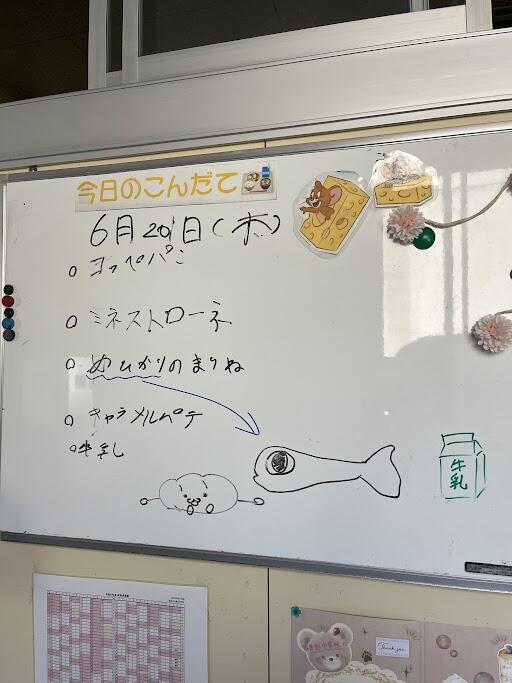 今日のこんだて
6月20日(木)
○コッペパン
○ミネストローネ
○めひかりのまりね
○キャラメルポテ
○牛乳
牛乳
Thank you